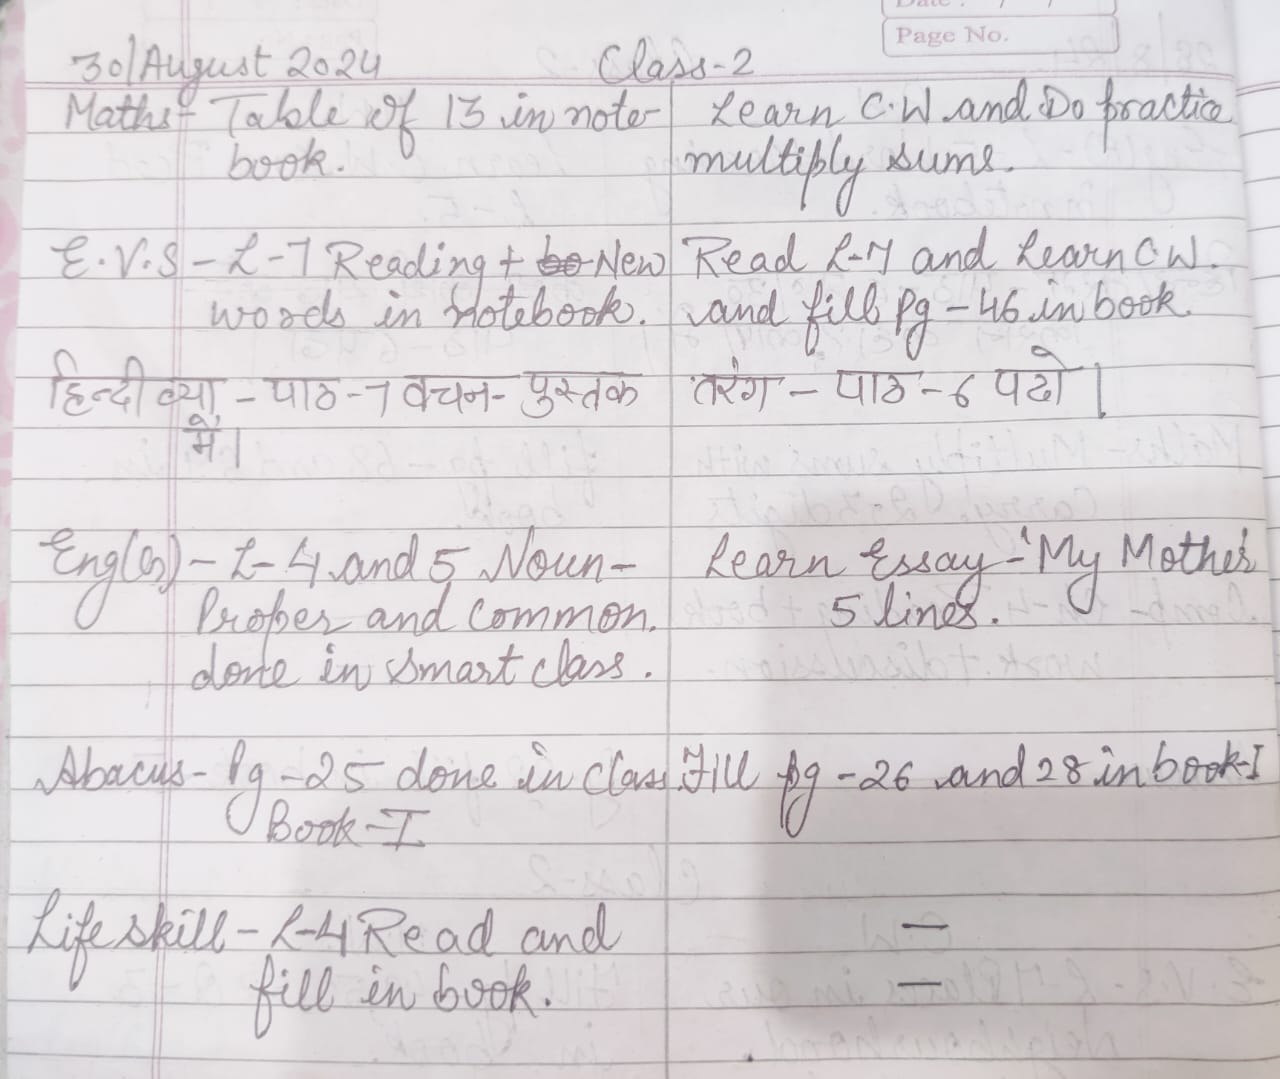 Date : / /
Page No.
30/August 2024 Class-2
Maths- Table of 13 in note-
book.
Learn C.W and Do practice
multiply sums.
E.V.S - L-7 Reading + New
words in notebook.
Read L-7 and Learn C.W.
and fill Pg - 46 in book.
हिन्दी व्या - पाठ-7 वचन- पुस्तक
में।
तरंग - पाठ - 6 पढो।
Eng(G) - L-4 and 5 Noun-
Proper and Common.
done in Smart class.
Learn Essay - 'My Mother'
5 lines.
Abacus - Pg - 25 done in Class.
Book-I
Fill pg - 26 and 28 in book-I
Life skill - L-4 Read and
fill in book.
—
—